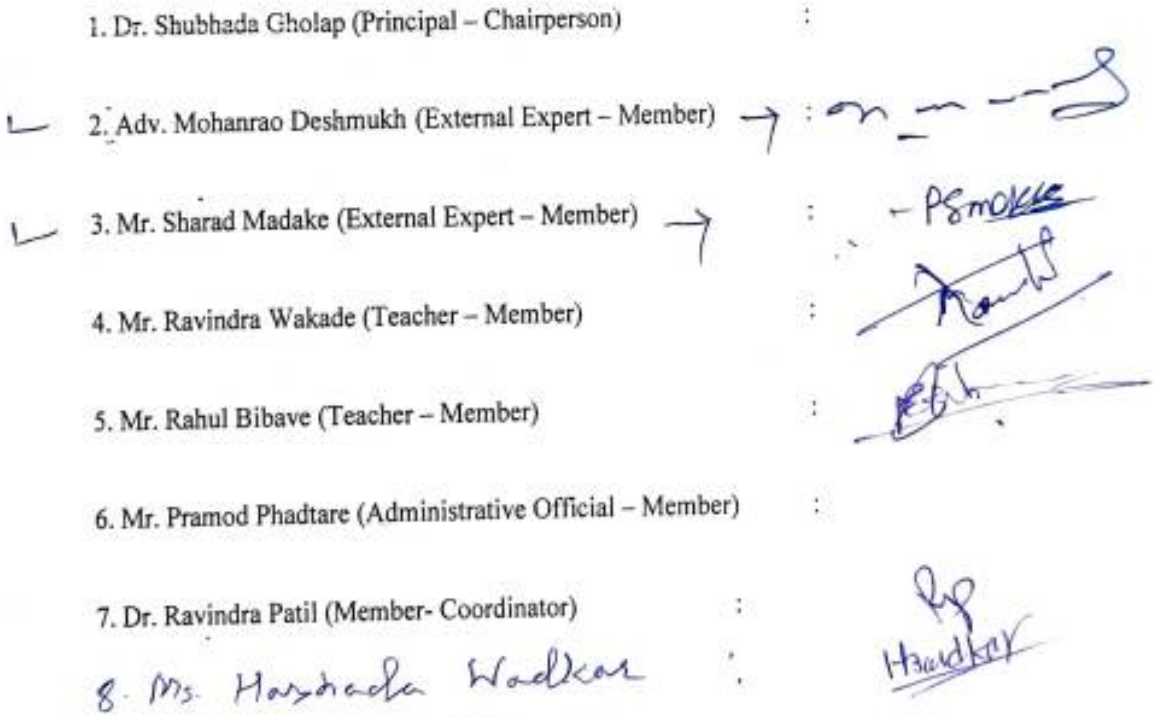 1. Dr. Shubhada Gholap (Principal – Chairperson) :
2. Adv. Mohanrao Deshmukh (External Expert – Member) → :
3. Mr. Sharad Madake (External Expert – Member) → :
4. Mr. Ravindra Wakade (Teacher – Member) :
5. Mr. Rahul Bibave (Teacher – Member) :
6. Mr. Pramod Phadtare (Administrative Official – Member) :
7. Dr. Ravindra Patil (Member- Coordinator) :
8. Ms. Harshada Wadkar :